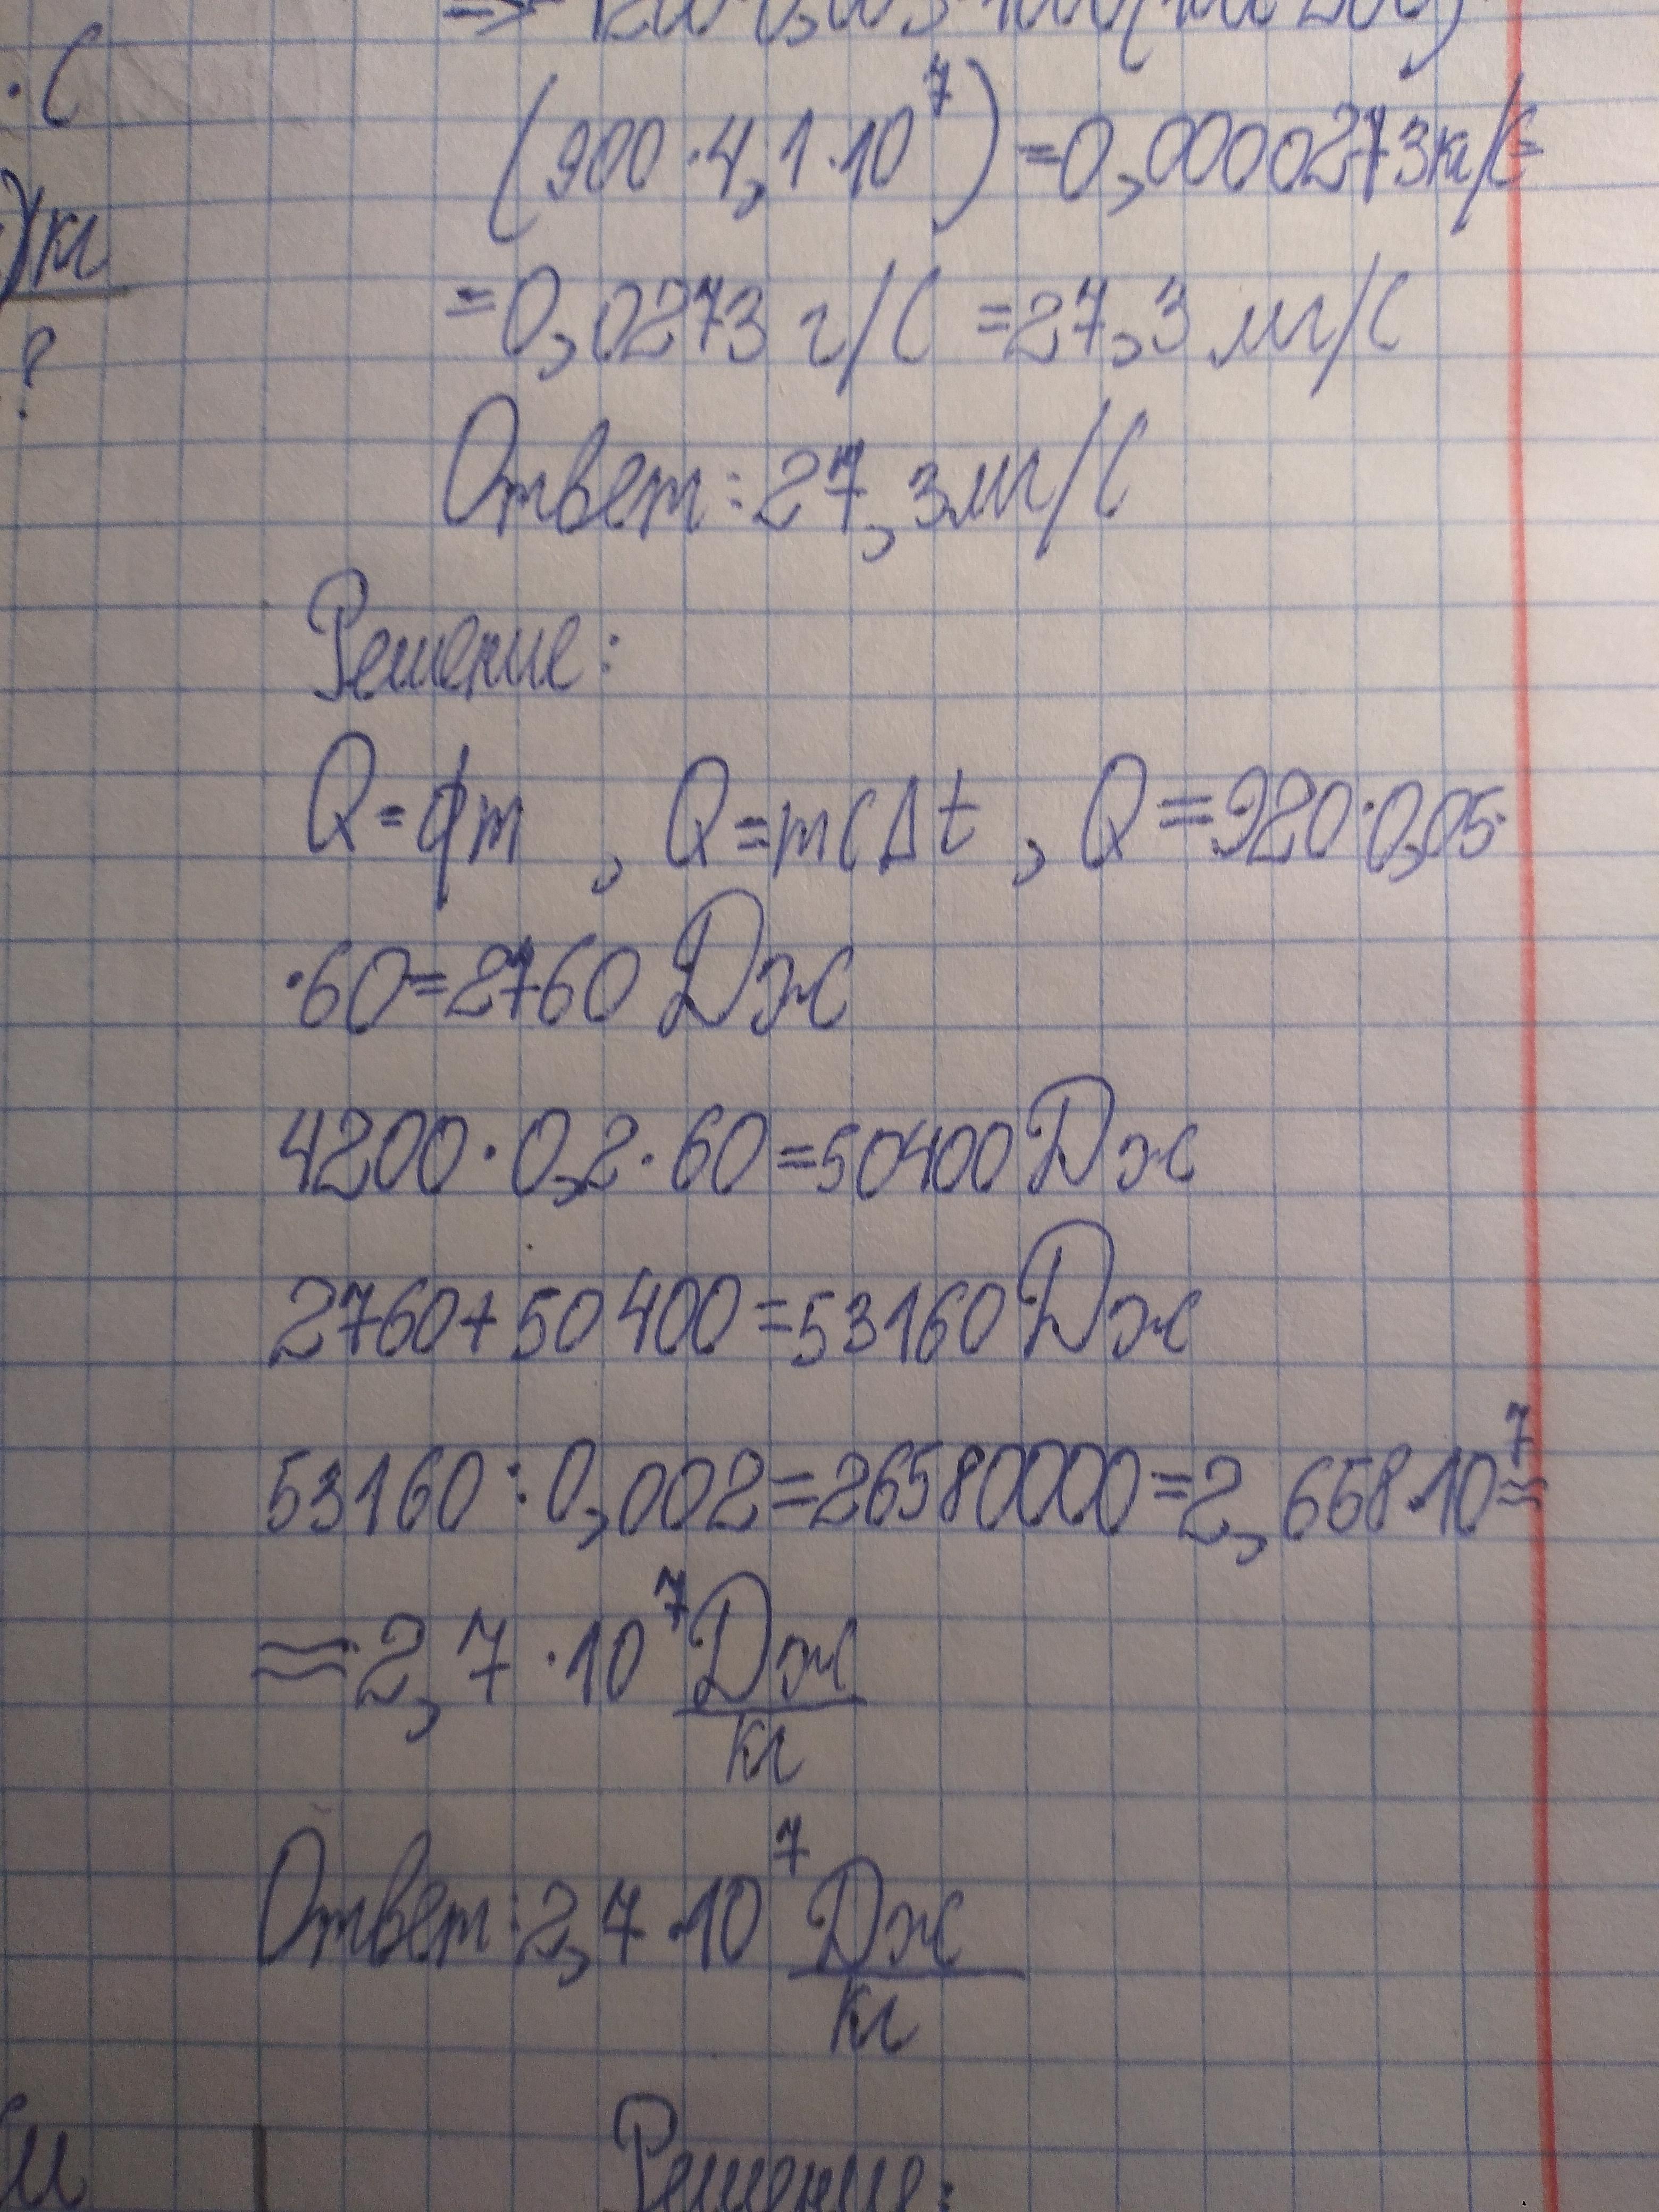 · С
(900 · 4,1 · 10⁷) = 0,0000273 кг/с =
)кг
= 0,0273 г/с = 27,3 мг/с
?
Ответ: 27,3 мг/с
Решение:
Q = qm , Q = mcΔt , Q = 920 · 0,05 ·
· 60 = 2760 Дж
4200 · 0,2 · 60 = 50400 Дж
2760 + 50400 = 53160 Дж
53160 : 0,002 = 26580000 = 2,658 · 10⁷ ≈
≈ 2,7 · 10⁷ Дж/кг
Ответ: 2,7 · 10⁷ Дж/кг
Решение: